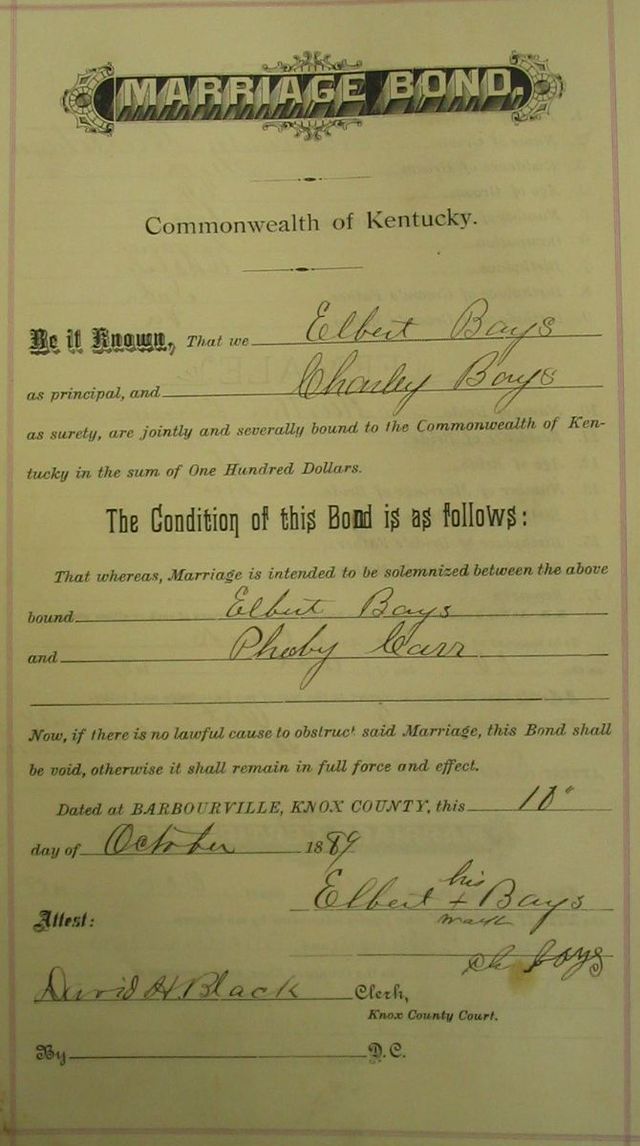 MARRIAGE BOND.
Commonwealth of Kentucky.
Be it Known, That we Elbert Bays
as principal, and Charley Bays
as surety, are jointly and severally bound to the Commonwealth of Ken-
tucky in the sum of One Hundred Dollars.
The Condition of this Bond is as follows:
That whereas, Marriage is intended to be solemnized between the above
bound Elbert Bays
and Pheby Carr
Now, if there is no lawful cause to obstruct said Marriage, this Bond shall
be void, otherwise it shall remain in full force and effect.
Dated at BARBOURVILLE, KNOX COUNTY, this 10"
day of October 1889
his
Elbert + Bays
mark
Attest:
Ch Bays
David H. Black Clerk,
Knox County Court.
By D.C.